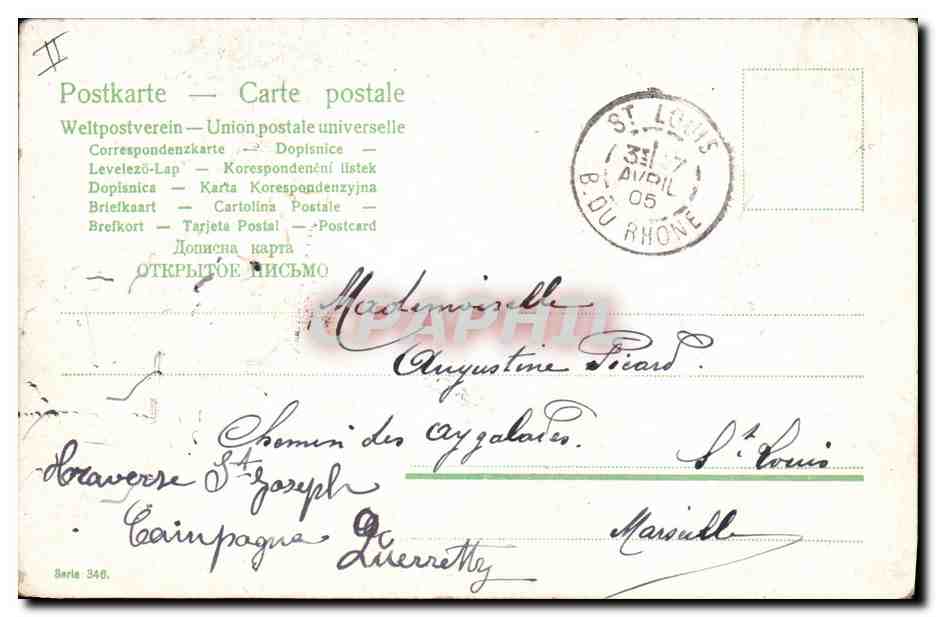 II
Postkarte — Carte postale
Weltpostverein — Union postale universelle
Correspondenzkarte — Dopisnice —
Levelező-Lap — Korespondenční listek
Dopisnica — Karta Korespondenzyjna
Briefkaart — Cartolina Postale —
Brefkort — Tarjeta Postal — Postcard
Дописна карта
ОТКРЫТОЕ ПИСЬМО
ST LOUIS
AVRIL
05
B. DU RHÔNE
CPAPHIL
Mademoiselle
Augustine Picard.
Chemin des Aygalades.
St Louis
Traverse St Joseph
Campagne
Marseille
Serie 346.